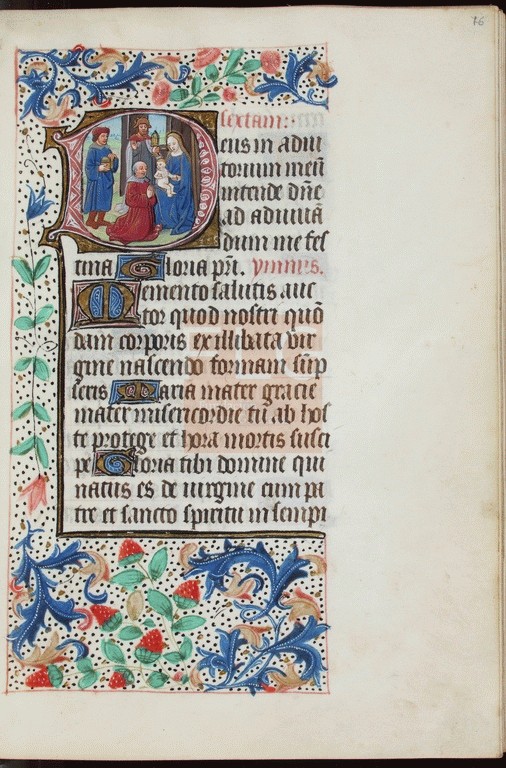 76
sextam:
Deus in adiu
torium meū
intende dn̄e
ad adiuuā
dum me fes
tina Gloria pr̄i. ymnus.
Memento salutis auc
tor quod nostri quō
dam corporis ex illibata vir
gine nascendo formam sūp
seris Maria mater gracie
mater misericordie tū ab hos
te protege et hora mortis susci
pe Gloria tibi domine qui
natus es de uirgine cum pa
tre et sancto spiritu in sempi